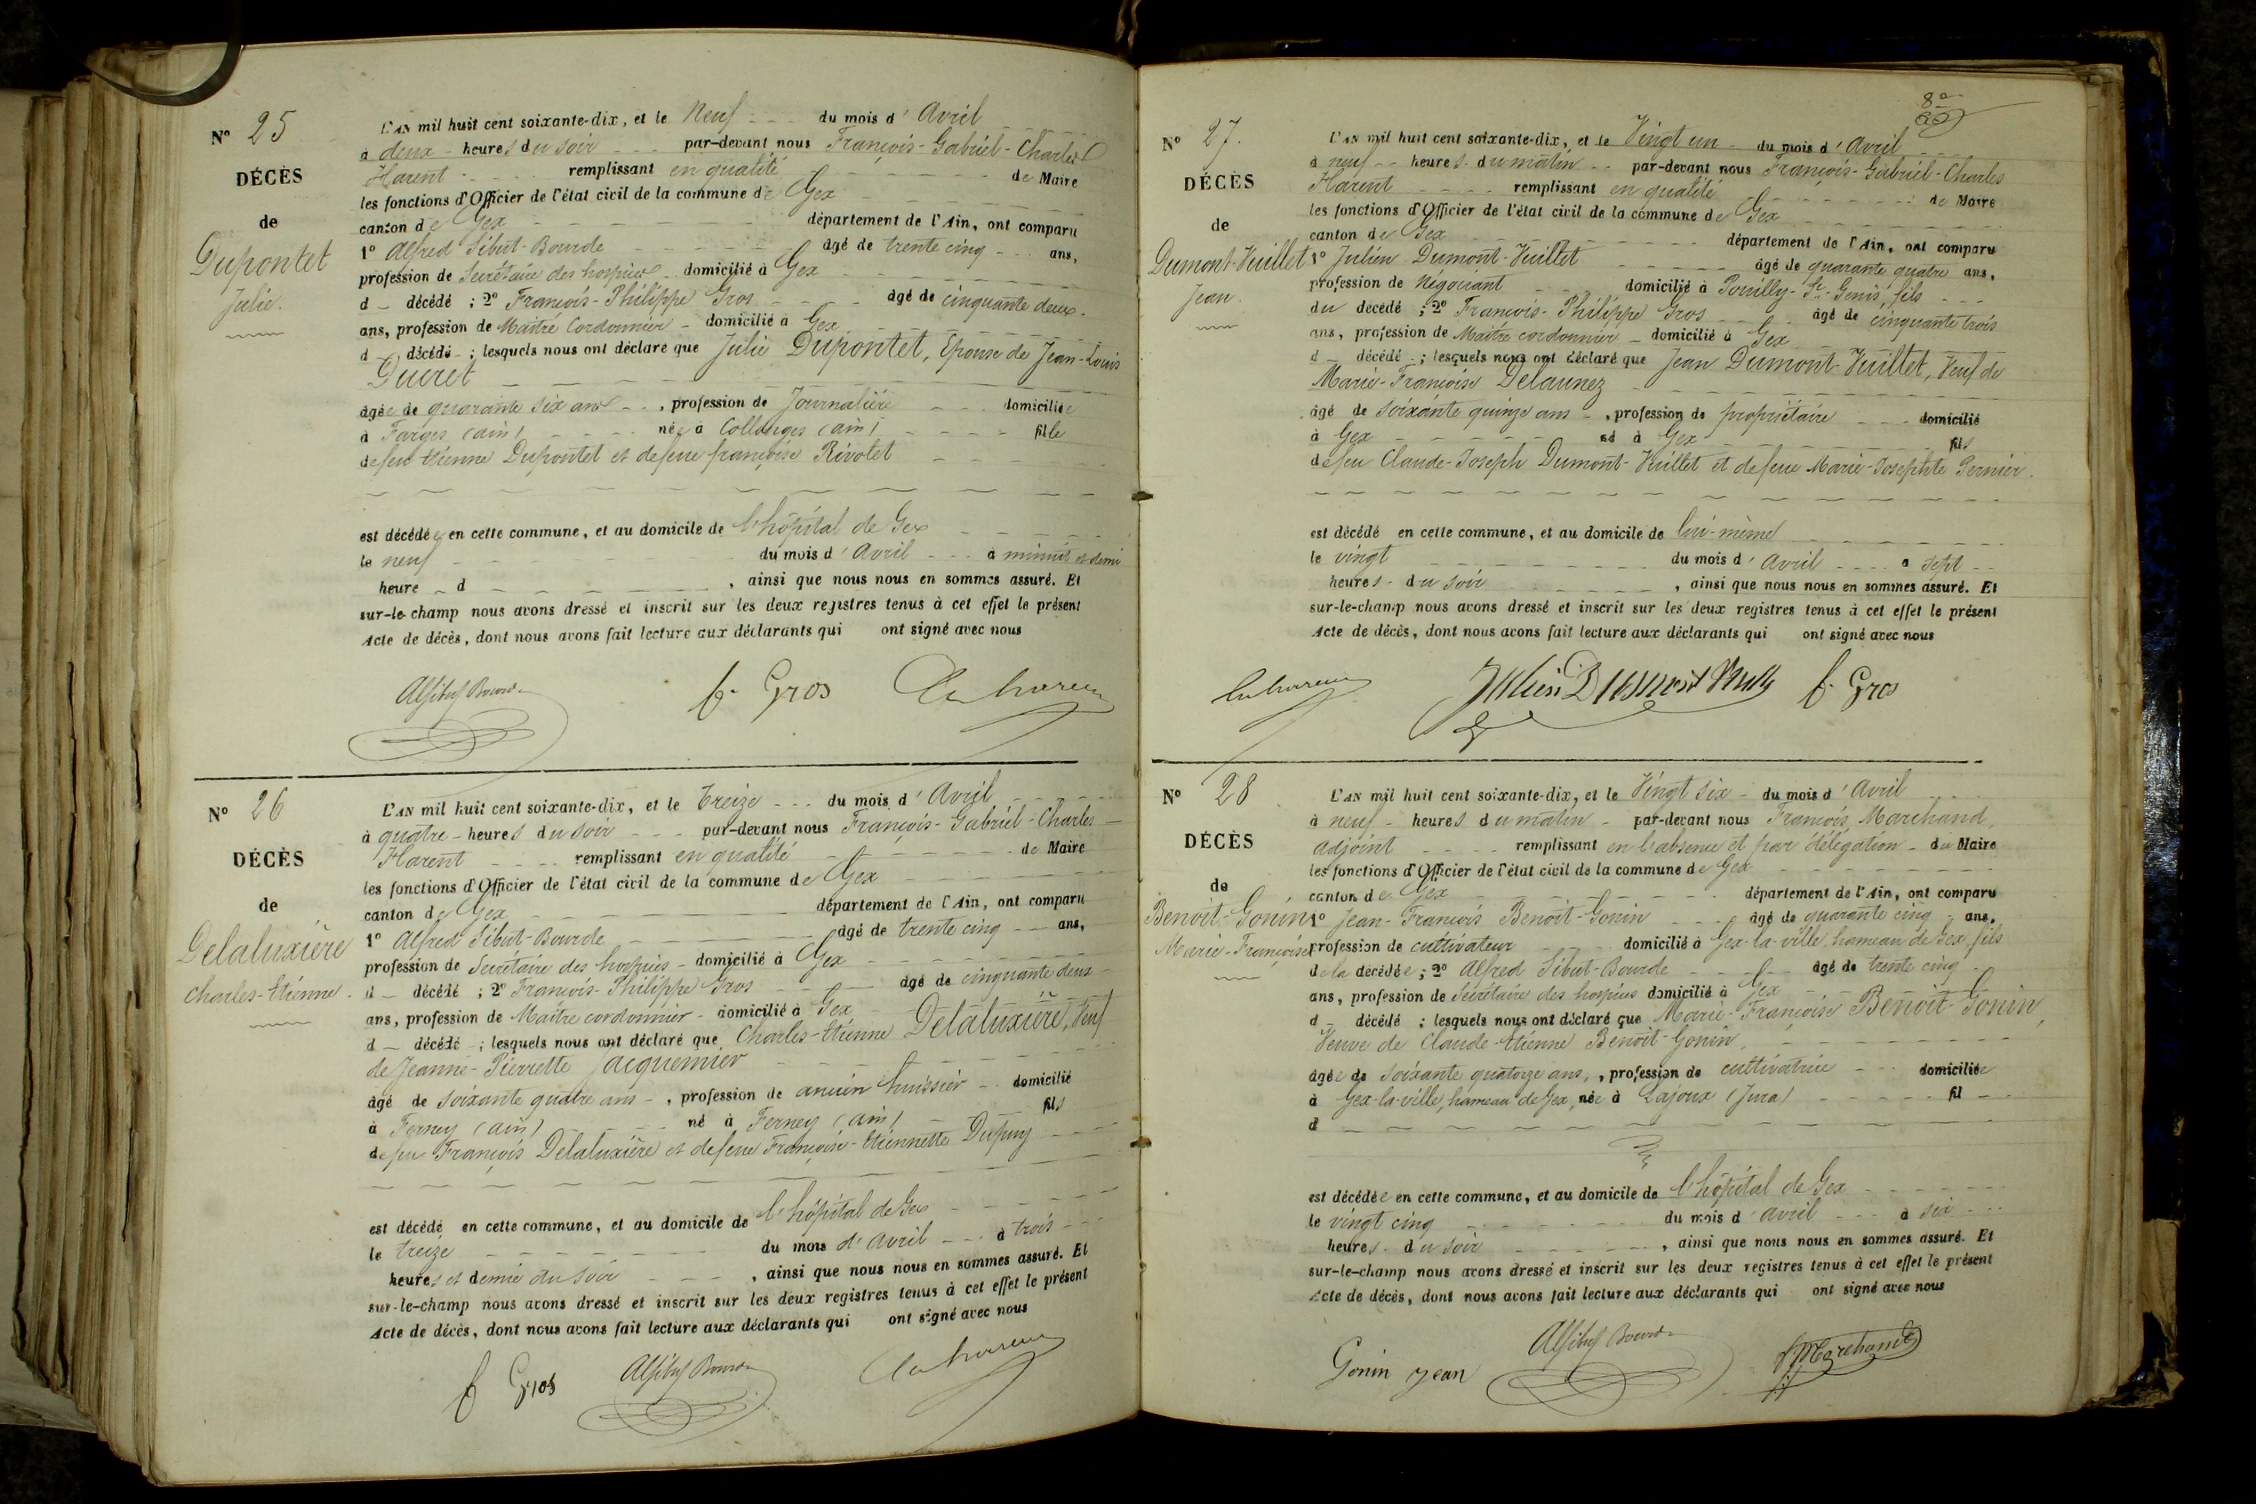 Nº 25
DÉCÈS
de
Dupontet
Julie.
L'AN mil huit cent soixante-dix, et le Neuf du mois d'Avril
à deux heures du soir par-devant nous François-Gabriel-Charles
Harent remplissant en qualité de Maire
les fonctions d'Officier de l'état civil de la commune de Gex
canton de Gex département de l'Ain, ont comparu
1º Alfred Sibut-Bourde âgé de trente cinq ans,
profession de Secrétaire des hospices domicilié à Gex
d décédé ; 2º François-Philippe Gros âgé de cinquante deux
ans, profession de Maître Cordonnier domicilié à Gex
d décédé ; lesquels nous ont déclaré que Julie Dupontet, Epouse de Jean-Louis
Dueret
âgée de quarante six ans, profession de Journalière domiciliée
à Farges (ain) née à Collonges (ain) fille
de feu Etienne Dupontet et de feue françoise Rivolet
est décédée en cette commune, et au domicile de l'hôpital de Gex
le neuf du mois d'Avril à minuit et demi
heure d , ainsi que nous nous en sommes assuré. Et
sur-le-champ nous avons dressé et inscrit sur les deux registres tenus à cet effet le présent
Acte de décès, dont nous avons fait lecture aux déclarants qui ont signé avec nous
f. Gros
Nº 26
DÉCÈS
de
Delaluxière
Charles-Etienne.
L'AN mil huit cent soixante-dix, et le Treize du mois d'Avril
à quatre heures du soir par-devant nous François-Gabriel-Charles
Harent remplissant en qualité de Maire
les fonctions d'Officier de l'état civil de la commune de Gex
canton de Gex département de l'Ain, ont comparu
1º Alfred Sibut-Bourde âgé de trente cinq ans,
profession de Secrétaire des hospices domicilié à Gex
d décédé ; 2º François-Philippe Gros âgé de cinquante deux
ans, profession de Maître cordonnier domicilié à Gex
d décédé ; lesquels nous ont déclaré que Charles-Etienne Delaluxière, Veuf
de Jeanne-Pierrette Jacquemier
âgé de soixante quatre ans, profession de ancien huissier domicilié
à Ferney (ain) né à Ferney (ain) fils
de feu François Delaluxière et de feue Françoise-Etiennette Dupuy
est décédé en cette commune, et au domicile de l'hôpital de Gex
le treize du mois d'Avril à trois
heures et demie du soir , ainsi que nous nous en sommes assuré. Et
sur-le-champ nous avons dressé et inscrit sur les deux registres tenus à cet effet le présent
Acte de décès, dont nous avons fait lecture aux déclarants qui ont signé avec nous
f Gros
Nº 27.
DÉCÈS
de
Dumont-Vuillet
Jean.
L'AN mil huit cent soixante-dix, et le Vingt un du mois d'Avril
à neuf heures du matin par-devant nous François-Gabriel-Charles
Harent remplissant en qualité de Maire
les fonctions d'Officier de l'état civil de la commune de Gex
canton de Gex département de l'Ain, ont comparu
1º Julien Dumont-Vuillet âgé de quarante quatre ans,
profession de Négociant domicilié à Pouilly-St-Genis, fils
du décédé ; 2º François-Philippe Gros âgé de cinquante trois
ans, profession de Maître cordonnier domicilié à Gex
d décédé ; lesquels nous ont déclaré que Jean Dumont-Vuillet, Veuf de
Marie-Françoise Delaunez
âgé de soixante quinze ans, profession de propriétaire domicilié
à Gex né à Gex fils
de feu Claude-Joseph Dumont-Vuillet et de feue Marie-Josephte Pernier.
est décédé en cette commune, et au domicile de lui-même
le vingt du mois d'Avril à sept
heures du soir , ainsi que nous nous en sommes assuré. Et
sur-le-champ nous avons dressé et inscrit sur les deux registres tenus à cet effet le présent
Acte de décès, dont nous avons fait lecture aux déclarants qui ont signé avec nous
f. Gros
Nº 28
DÉCÈS
de
Benoit-Gonin
Marie-Françoise
L'AN mil huit cent soixante-dix, et le Vingt six du mois d'Avril
à neuf heures du matin par-devant nous François Marchand,
adjoint remplissant en l'absence et par délégation du Maire
les fonctions d'Officier de l'état civil de la commune de Gex
canton de Gex département de l'Ain, ont comparu
1º Jean-François Benoit-Gonin âgé de quarante cinq ans,
profession de cultivateur domicilié à Gex-la-ville, hameau de Gex, fils
de la décédée ; 2º Alfred Sibut-Bourde âgé de trente cinq
ans, profession de Secrétaire des hospices domicilié à Gex
d décédé ; lesquels nous ont déclaré que Marie-Françoise Benoit-Gonin,
Veuve de Claude-Etienne Benoit-Gonin,
âgée de soixante quatorze ans, profession de cultivatrice domiciliée
à Gex-la-ville, hameau de Gex, née à Lajoux (Jura) fil
d
est décédée en cette commune, et au domicile de l'hôpital de Gex
le vingt cinq du mois d'avril à six
heures du soir , ainsi que nous nous en sommes assuré. Et
sur-le-champ nous avons dressé et inscrit sur les deux registres tenus à cet effet le présent
Acte de décès, dont nous avons fait lecture aux déclarants qui ont signé avec nous
Gonin jean
f Marchand